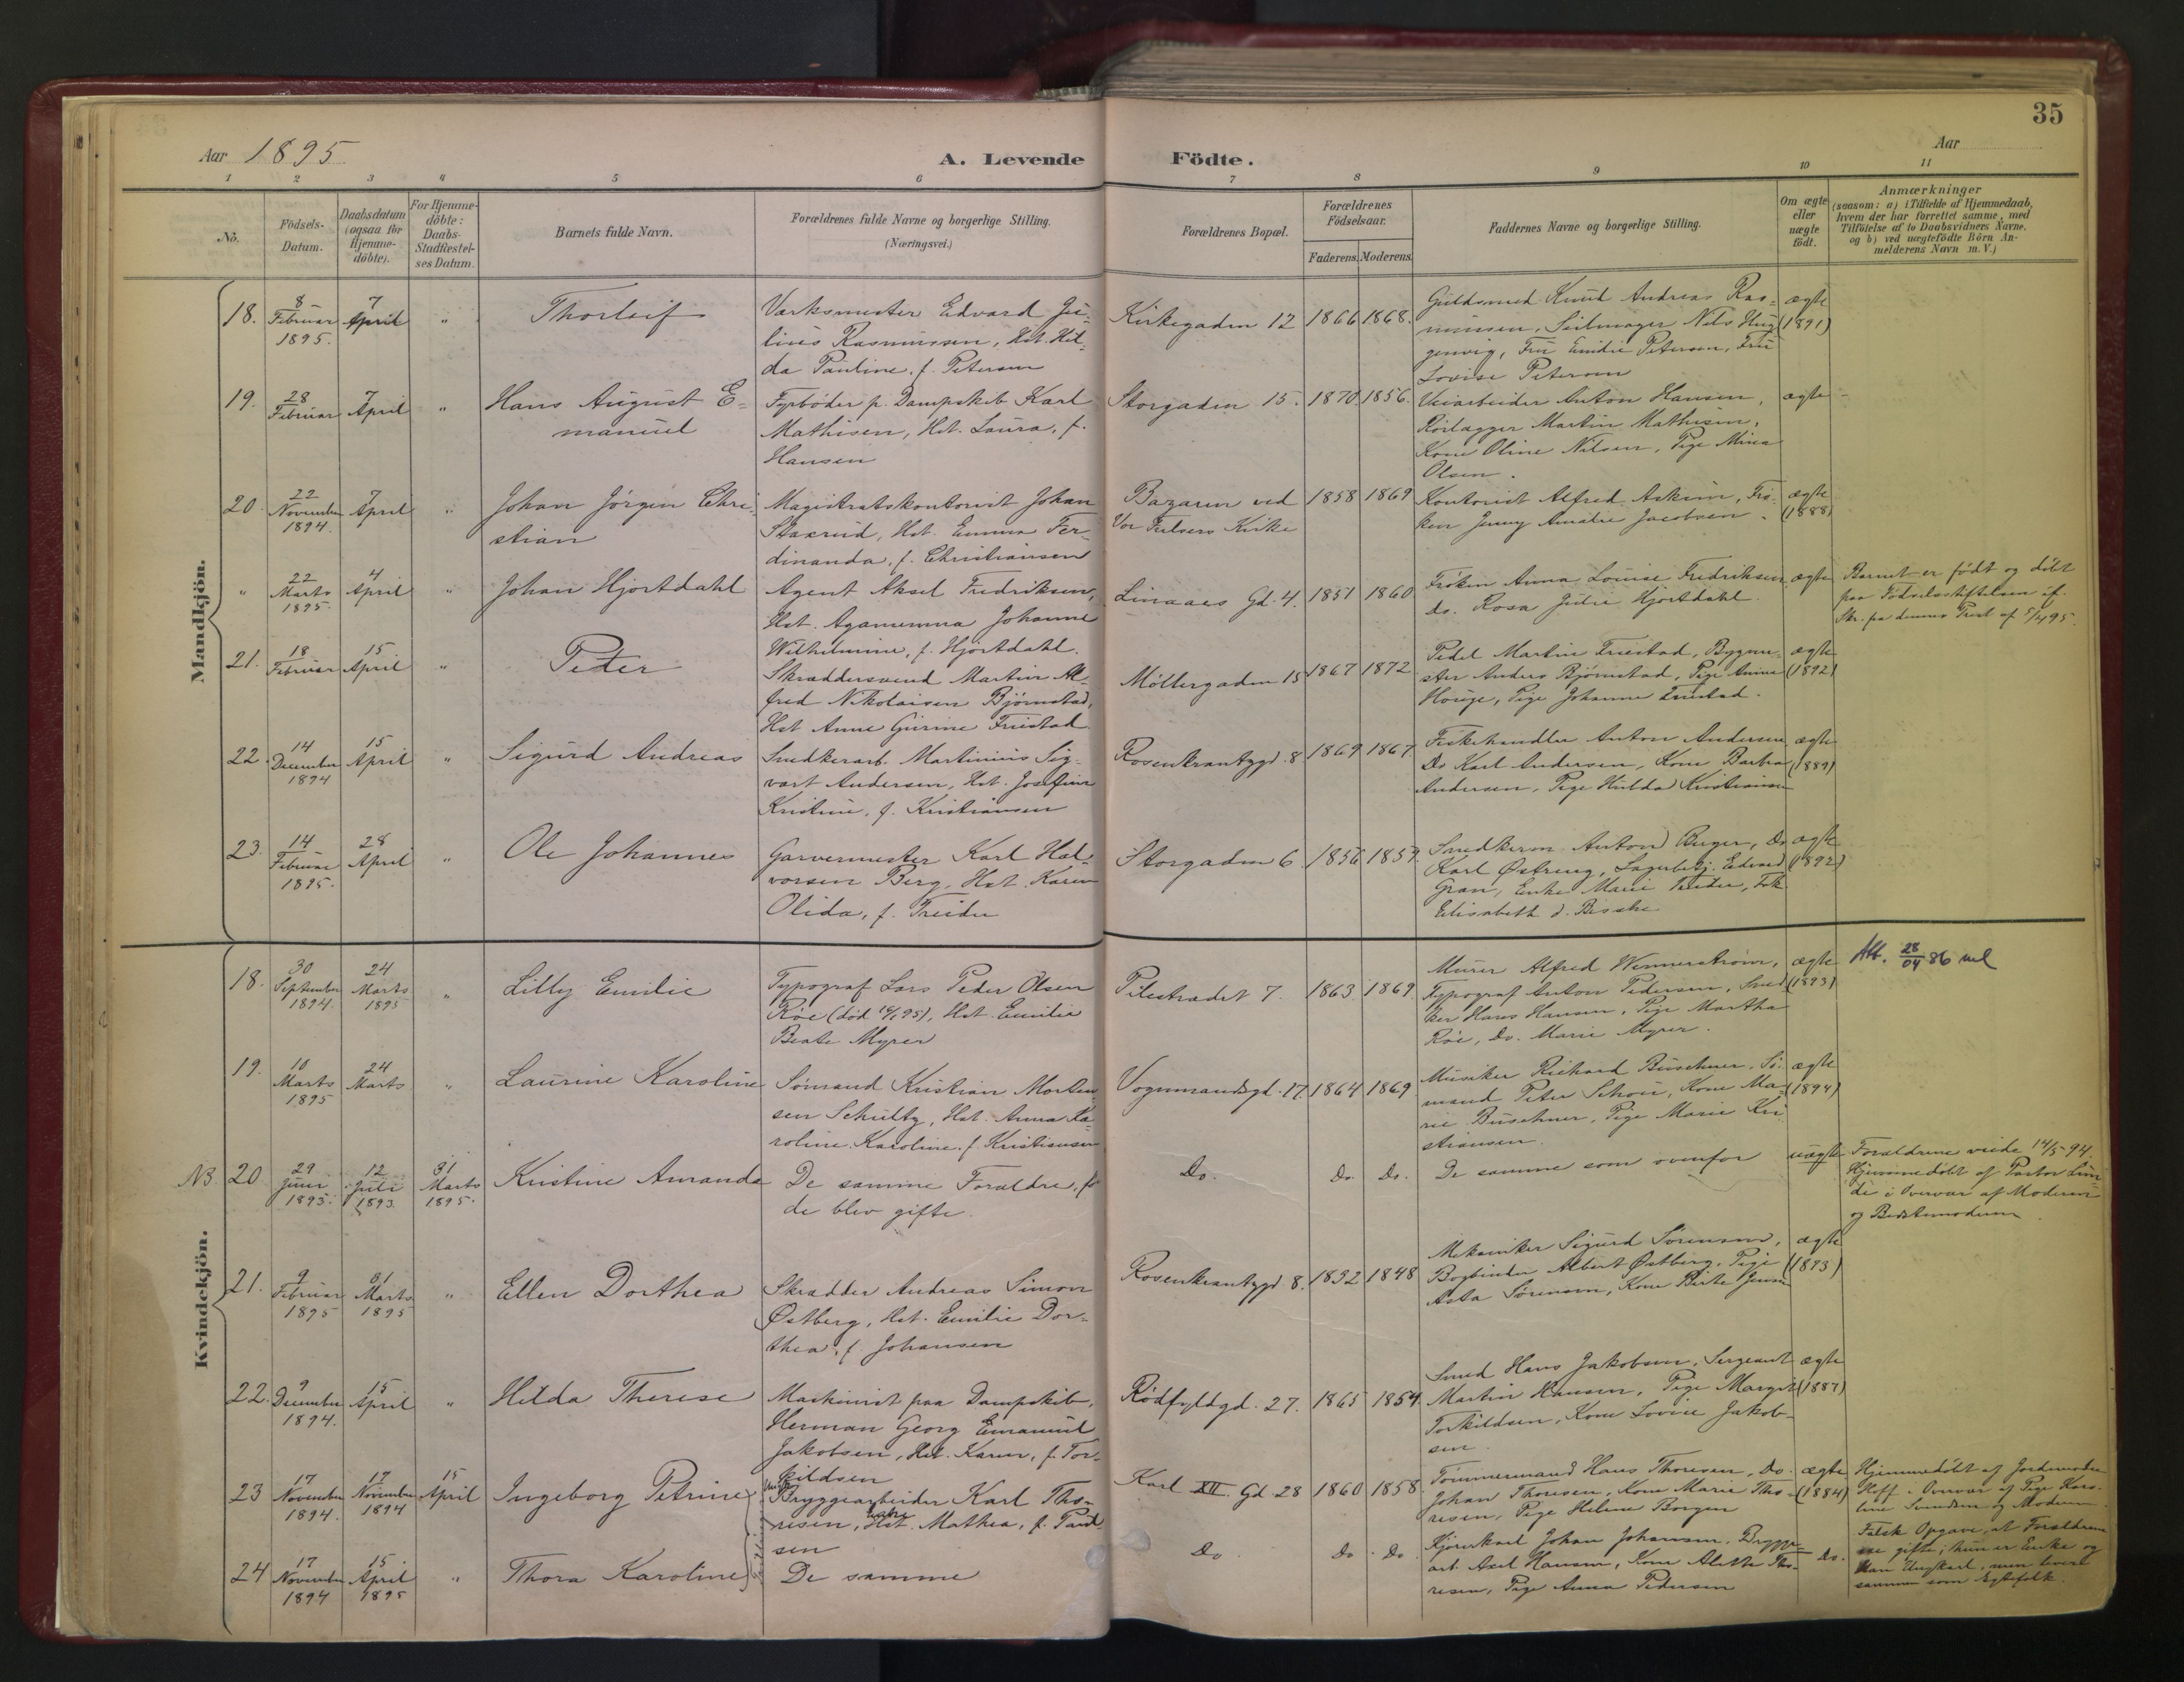 35
Aar 1895
A. Levende Födte.
Aar
1 2 3 4 5 6 7 8 9 10 11
No.
Födsels-Datum.
Daabsdatum (ogsaa for Hjemme-döbte).
For Hjemme-döbte: Daabs-Stadfæstel-ses Datum.
Barnets fulde Navn.
Forældrenes fulde Navne og borgerlige Stilling. (Næringsvei.)
Forældrenes Bopæl.
Forældrenes Födselsaar.
Faderens. Moderens.
Faddernes Navne og borgerlige Stilling.
Om ægte eller uægte födt.
Anmærkninger
(saasom: a) i Tilfælde af Hjemmedaab, hvem der har forrettet samme, med Tilföielse af to Daabsvidners Navne. og b) ved uægtefödte Börn An-melderens Navn m. V.)
Mandkjön.
18. 8 Februar 1895. 7 April " Thorleif
Værksmester Edvard Ju-
lius Rasmussen, Hst. Hil-
da Pauline, f. Petersen
Kirkegaden 12 1866 1868.
Guldsmed Knud Andreas Ras-
mussen, Seilmager Nils
Fru Emilie Petersen, Fru
Lovise Petersen
ægte (1891)
19. 28 Februar 7 April " Hans August E-
manuel
Fyrbøder p. Dampskib Karl
Mathisen, Hst. Laura, f.
Hansen
Storgaden 15. 1870. 1856.
Veiarbeider Anton Hansen,
Rørlægger Martin Mathisen,
Kone Oline Nilsen, Pige Mina
Olsen.
ægte
20. 22 November 1894. 7 April " Johan Jörgen Chri-
stian
Magistratskontorist Johan
Staxrud, Hst. Emma Fer-
dinanda, f. Christiansen
Bazaren ved
Vor Frelsers Kirke
1858 1869
Kontorist Alfred Askim, Frö-
ken Jenny Amalie Jacobsen.
ægte (1888)
" 22 Marts 1895. 4 April " Johan Hjortdahl
Agent Aksel Fredriksen,
Hst. Agamemna Johanne
Wilhelmine, f. Hjortdahl.
Linaaes Gd. 4. 1851 1860
Fröken Anna Louise Fredriksen
do. Rosa Julie Hjortdahl.
ægte
Barnet er födt og döbt
paa Fødselsstiftelsen if.
Skr. fra dennes Præst af 5/4 95.
21. 18 Februar 15 April " Peder
Skræddersvend Martin Al-
fred Nikolaisen Björnstad,
Hst Anne Gurine Fristad
Möllergaden 15 1867 1872
Pedel Martin Fristad, Bygme-
ster Anders Björnstad, Pige Anne
Houge, Pige Johanne Fristad.
ægte (1892)
22. 14 December 1894 15 April " Sigurd Andreas
Snedkerarb. Martinius Sig-
vart Andersen, Hst. Josefine
Kristine, f. Kristiansen
Rosenkrantzgd. 8 1869 1867.
Fiskehandler Anton Andersen
Do Karl Andersen, Kone Barbra
Andersen, Pige Hulda Kristiansen
ægte (1889)
23. 14 Februar 1895. 28 April " Ole Johannes
Garvermester Karl Hal-
vorsen Berg, Hst. Karen
Olida, f. Treider
Storgaden 6. 1856 1859.
Snedkersv. Anton Auger, Do
Karl Østreng, Lagerbetj. Edvard
Gran, Enke Marie Treider, Frk.
Elisabeth
ægte (1892)
Kvindekjön.
18. 30 September 1894. 24 Marts 1895 " Lilly Emilie
Typograf Lars Peder Olsen
Röe (död 95), Hst. Emilie
Beate Myrer
Pilestrædet 7. 1863. 1869.
Murer Alfred Wennerström,
Typograf Anton Pedersen, Sned-
ker Hans Hansen, Pige Martha
Röe, Do. Marie Myrer.
ægte (1893)
Att. 28/04 86
19. 10 Marts 1895 24 Marts " Laurine Karoline
Sömand Kristian Morten-
sen Schultz, Hst. Anna Ka-
roline Karoline f. Kristiansen
Vognmandsgd. 17. 1864 1869
Musiker Richard Büschner, Sö-
mand Peter Schou, Kone Ma-
rie Büschner, Pige Marie Kri-
stiansen.
ægte (1894)
NB. 20. 29 Juni 1893. 12 Juli 1893. 31 Marts 1895. Kristine Amanda
De samme Forældre, før
de blev gifte.
Do. Do. Do.
De samme som ovenfor
uægte
Forældrene viede 14/5 94.
Hjemmedöbt af Pastor Lun-
de i Overvær af Moderen
og Bedstemoderen
21. 9 Februar 1895 31 Marts 1895 " Ellen Dorthea
Skrædder Andreas Simon
Østberg, Hst. Emilie Dor-
thea, f. Johansen
Rosenkrantzgd. 8. 1852 1848
Mekaniker Sigurd Sörensen,
Bogbinder Albert Østberg, Pige
Asta Sörensen, Kone Berte Jensen
ægte (1873)
22. 9 December 1894. 15 April " Hilda Therese
Maskinist paa Dampskib.
Herman Georg Emanuel
Jakobsen, Hst. Karen, f. Tor-
kildsen
Rödfyldgd. 27. 1865 1854
Smed Hans Jakobsen, Sergeant
Martin Hansen, Pige Margit
Torkildsen, Kone Lovise Jakob-
sen.
ægte (1887)
23 17 November 1894. 17 November 1894 15 April Ingeborg Petrine
Ungk.
Bryggearbeider Karl Tho-
resen, Hst. Enke Mathea, f. Paul-
sen
Karl XII. Gd 28 1860 1858.
Tömmermand Hans Thoresen, Do.
Johan Thoresen, Kone Marie Tho-
resen, Pige Helene Borgen
ægte (1884)
Hjemmedöbt af Jordemoder
Hoff i Overvær af Pige Karo-
line Svendsen og Moderen.
24 17 November 1894 15 April 1895 " Thora Karoline
De samme
Do. Do. Do.
Kjörekarl Johan Johansen, Brygge-
arb. Axel Hansen, Kone Alette Tho-
resen, Pige Anna Pedersen
Do.
Falsk Opgave, at Forældrene
ere gifte; hun er Enke og
han Ungkarl, men levere
sammen som Egtefolk.